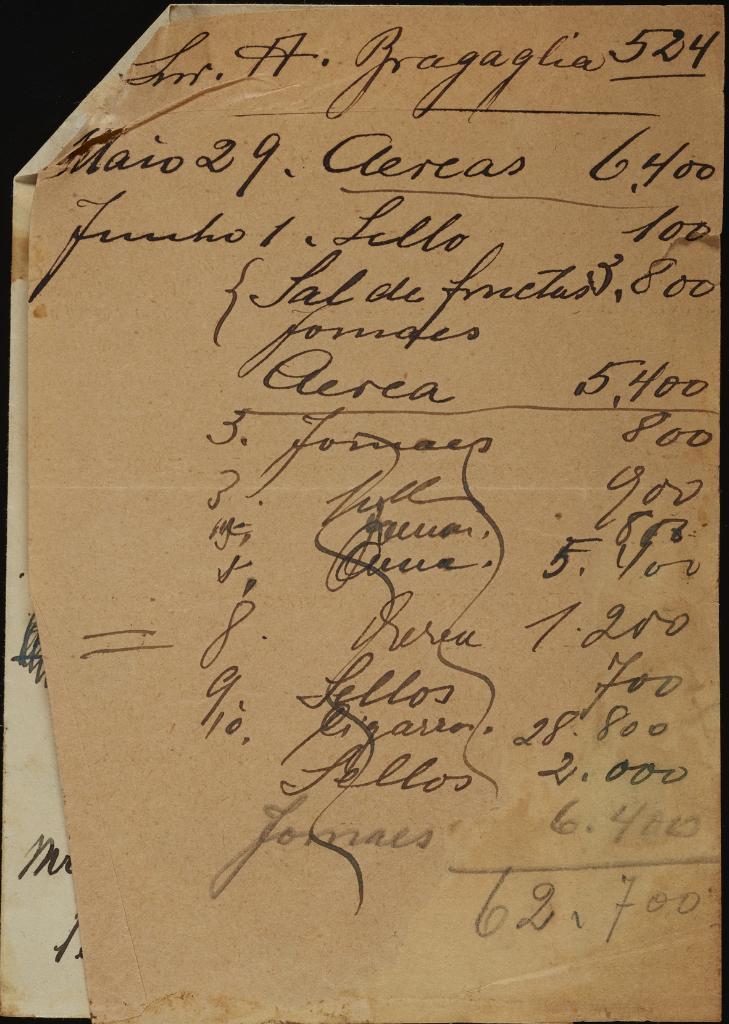 Snr. A. Bragaglia 524
Maio 29. Aereas 6.400
Junho 1. Sello 100
{ Sal de fructas 3.800
Jornaes
Aerea 5.400
3. Jornaes 800
3. Sello 900
800
5. 400
8. Aerea 1.200
9 Sellos 700
10. Cigarros. 28.800
Sellos 2.000
Jornaes 6.400
62.700